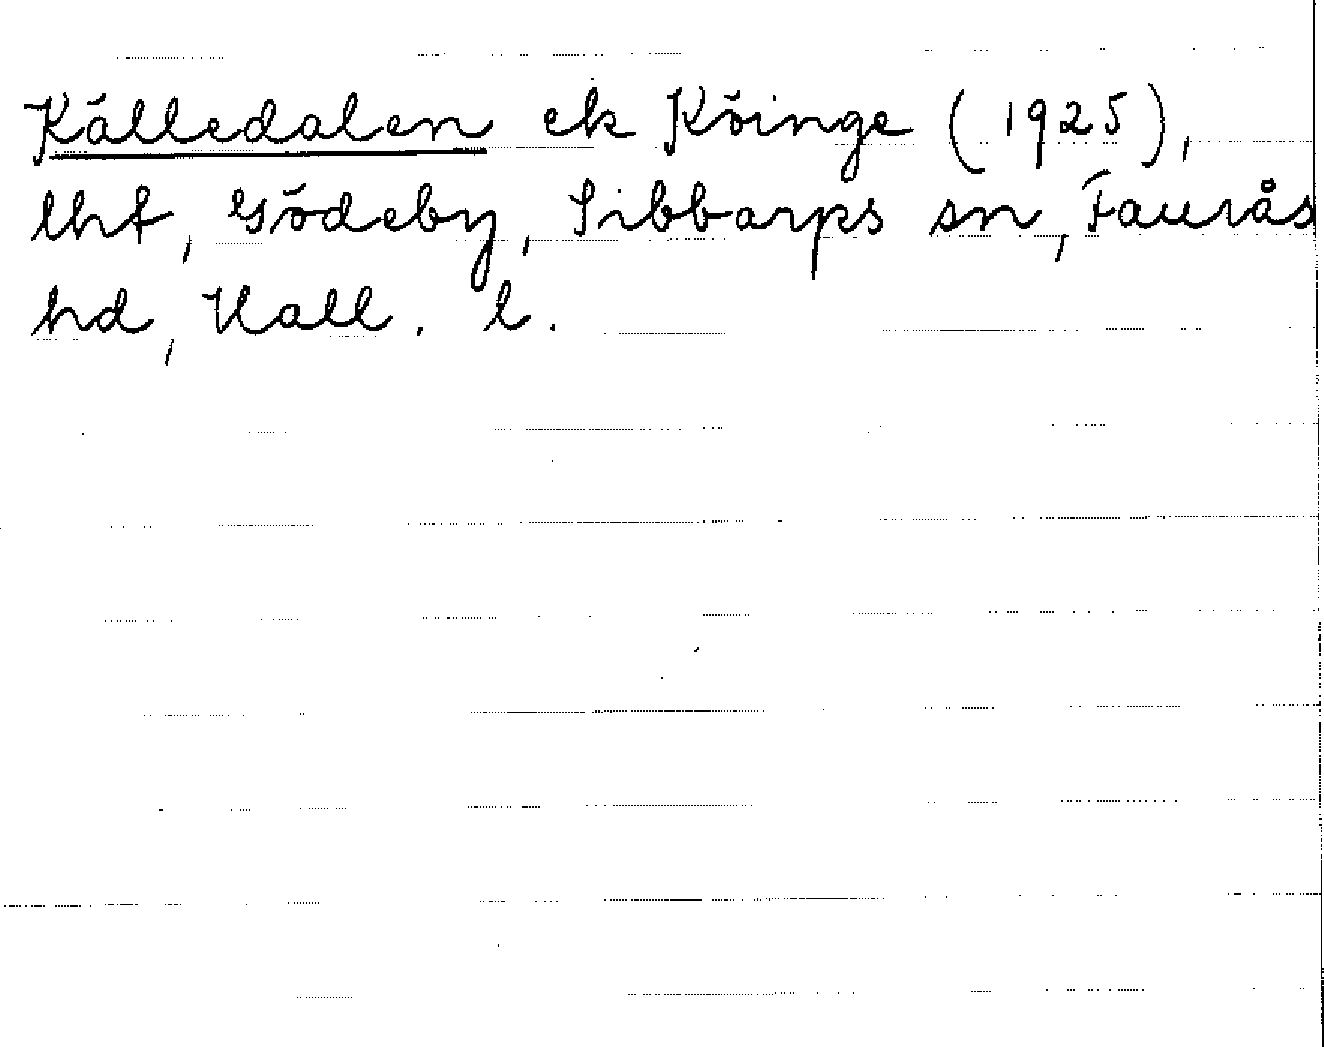 Källedalen ek Köinge (1925),
lht, Gödeby, Sibbarps sn, Faurås
hd, Hall. l.